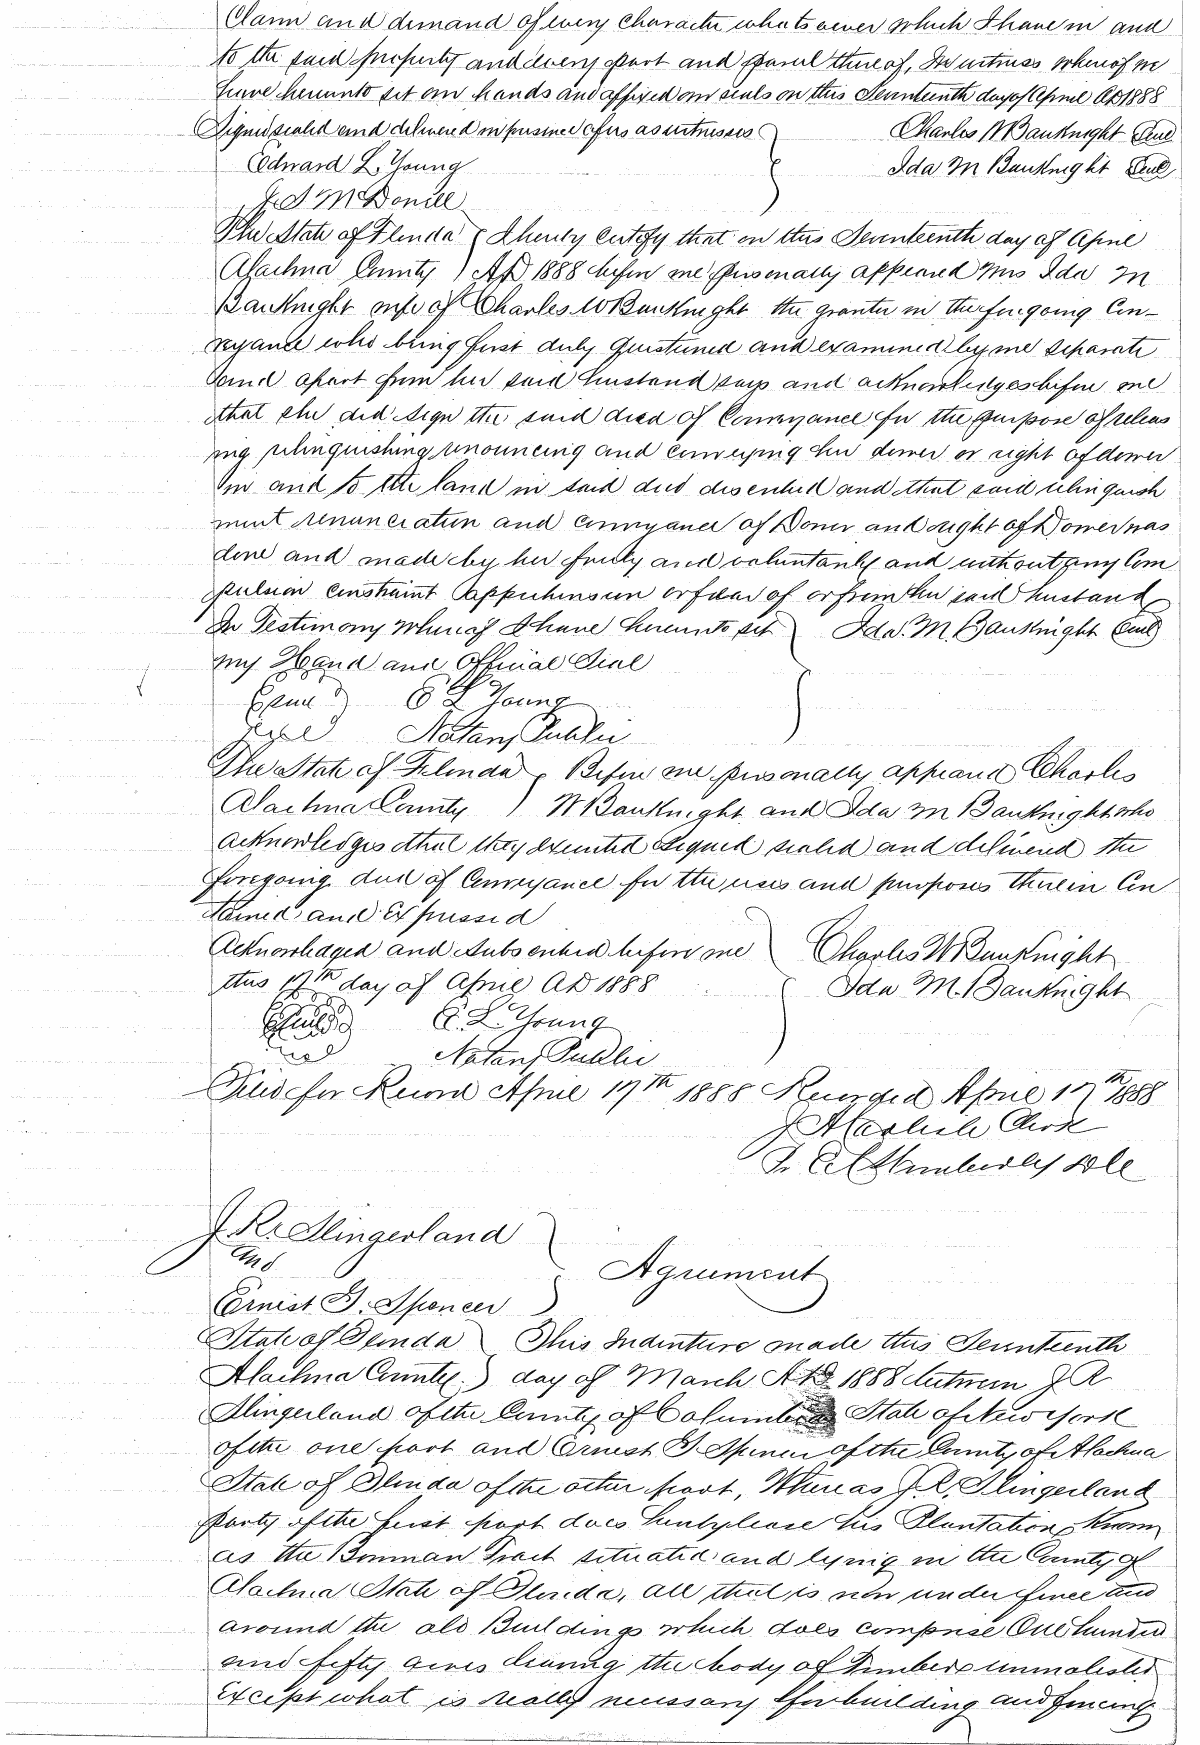 Claim and demand of every character whatsoever which I have in and
to the said property and every part and parcel thereof, In witness whereof we
have hereunto set our hands and affixed our seals on this Seventeenth day of April AD 1888
Signed sealed and delivered in presence of us as witnesses } Charles W BauKnight Seal
Edward L. Young Ida M BauKnight Seal
J. S McDonell
The State of Florida } I hereby certify that on this Seventeenth day of April
Alachua County ) AD 1888 before me personally appeared Mrs Ida M
BauKnight wife of Charles W BauKnight the grantor in the foregoing Con-
veyance who being first duly questioned and examined by me separate
and apart from her said husband says and acknowledges before me
that she did sign the said deed of Conveyance for the purpose of releas
ing relinquishing renouncing and conveying her dower or right of dower
in and to the land in said deed described and that said relinquish
ment renunciation and conveyance of Dower and right of Dower was
done and made by her freely and voluntarily and without any Com
pulsion constraint apprehension or fear of or from her said husband
In Testimony Whereof I have hereunto set } Ida. M. BauKnight Seal
my Hand and Official Seal
E L Young
Notary Public
The State of Florida } Before me personally appeared Charles
Alachua County ) W BauKnight and Ida M BauKnight who
acknowledges that they executed signed sealed and delivered the
foregoing deed of Conveyance for the uses and purposes therein Con
tained and Expressed
Acknowledged and Subscribed before me } Charles W BauKnight
this 17th day of April AD 1888 Ida M. BauKnight
Seal E. L. Young
Notary Public
Filed for Record April 17th 1888 Recorded April 17th 1888
J A Clerk
J. C DC
J. R. Slingerland
and
Agreement
Ernest G. Spencer
State of Florida } This Indenture made this Seventeenth
Alachua County.) day of March AD 1888 between J R
Slingerland of the County of Columbia State of New York
of the one part and Ernest G. Spencer of the County of Alachua
State of Florida of the other part, Whereas J. R. Slingerland
Party of the first part does hereby lease his Plantation, Known
as the Bowman Tract situated and lying in the County of
Alachua State of Florida, all that is now under fence and
around the old Buildings which does comprise One hundred
and fifty acres leaving the body of Timber unmolested
Except what is really necessary for building and fencing